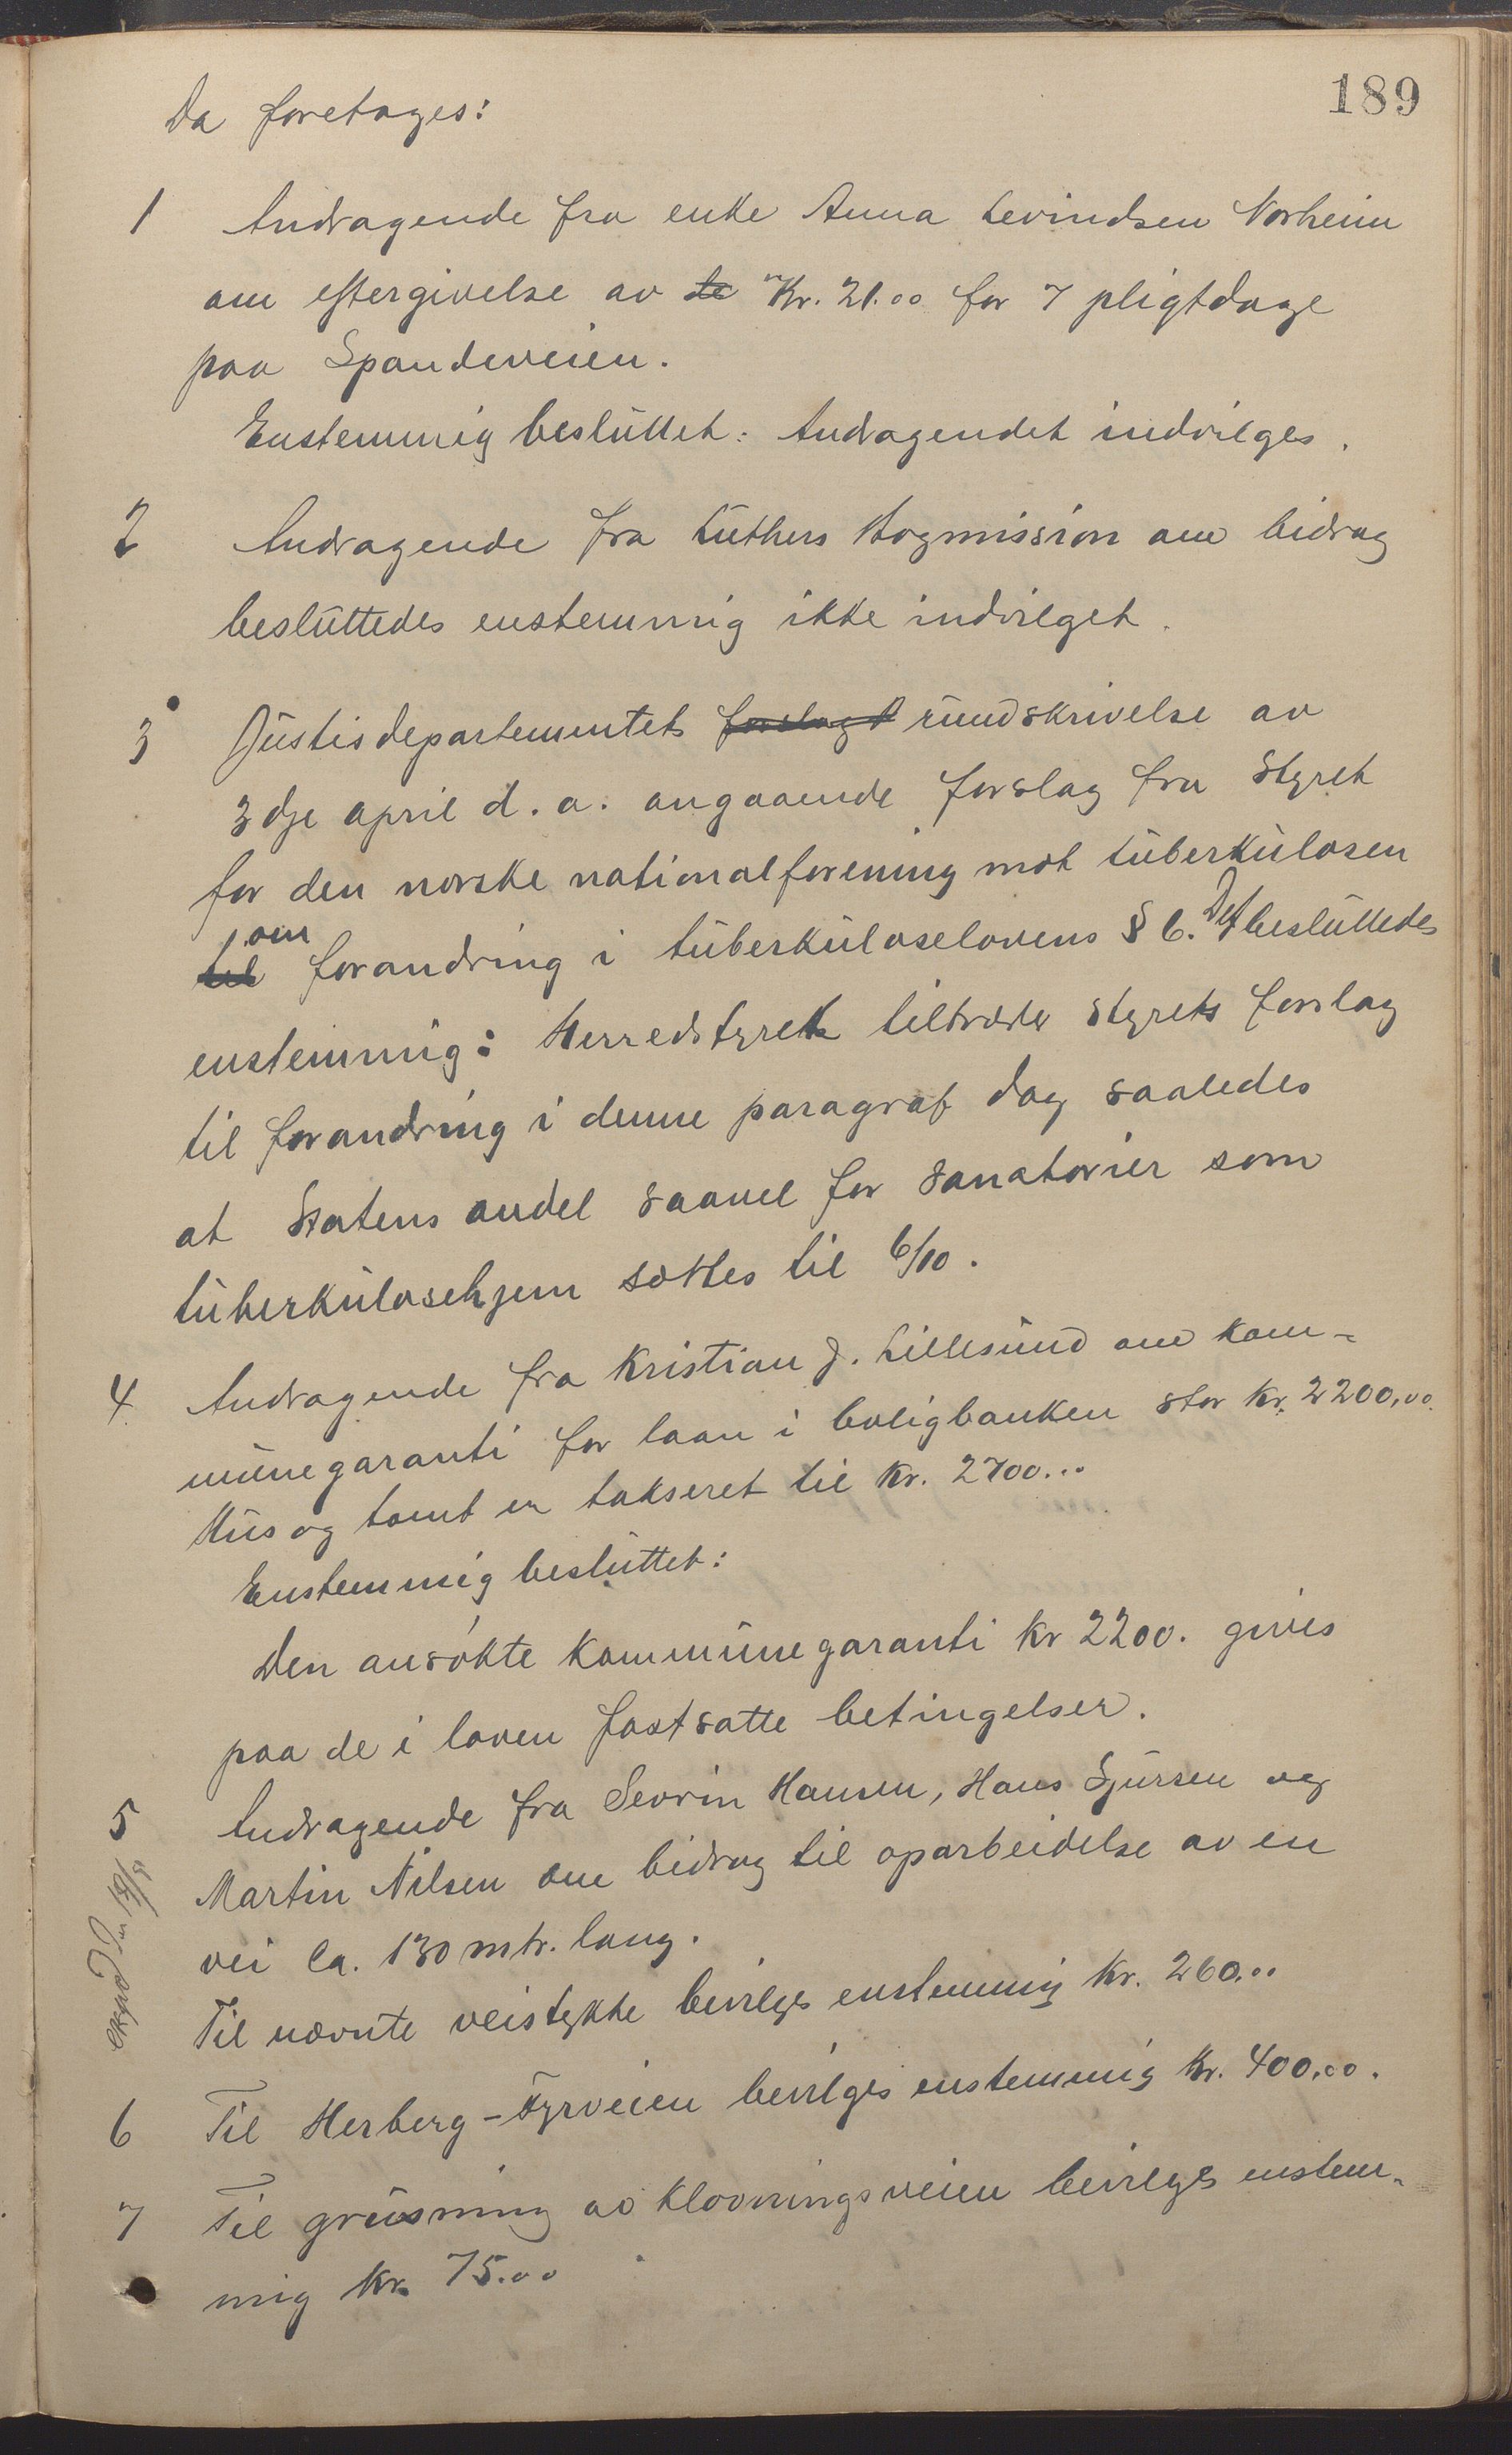 189
Da foretages:
1 Andragende fra enke Anna Levindsen Norheim
om eftergivelse av de Kr. 21.00 for 7 pligtdage
paa Spandeveien.
Enstemmig besluttet: Andragendet indvilges.
2 Andragende fra Luthers Hogmission om bidrag
besluttedes enstemmig ikke indvilget.
3 Justisdepartementets forslag rundskrivelse av
3dje april d. a. angaaende forslag fra styret
for den norske nationalforening mot tuberkulosen
til om forandring i tuberkuloselovens § 6. Det besluttedes
enstemmig: Herredstyret tiltræder styrets forslag
til forandring i denne paragraf dog saaledes
at Statens andel saavel for sanatorier som
tuberkulosehjem sættes til 6/10.
4 Andragende fra Kristian J. Lillesund om kom-
munegaranti for laan i boligbanken stor kr. 2200,00.
Hus og tomt er takseret til kr. 2700...
Enstemmig besluttet:
Den ansökte kommunegaranti kr 2200. gives
paa de i loven fastsatte betingelser.
5 Andragende fra Sevrin Hansen, Hans Sjursen og
Martin Nilsen om bidrag til oparbeidelse av en
vei ca. 130 mtr. lang.
Til nævnte veistykke bevilges enstemmig kr. 260,00
6 Til Herberg-Fyrveien bevilges enstemmig kr. 400,00.
7 Til grusning av Klovningsveien bevilges enstem-
mig kr. 75.00